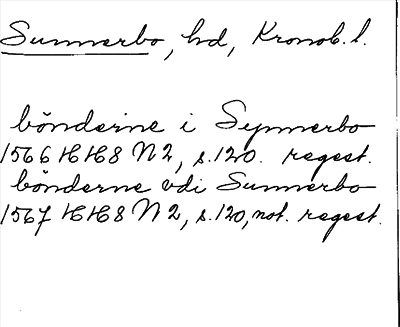 Sunnerbo, hd, Kronob. l.
bönderne i Synnerbo
1566 HH8 N2, s. 120. regest.
bönderne vdi Sunnerbo
1567 HH8 N2, s. 120, not. regest.